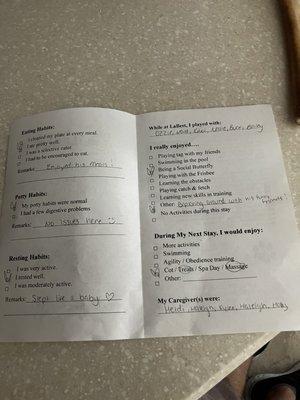 Eating Habits:
I cleaned my plate at every meal.
I ate pretty well.
I was a selective eater
I had to be encouraged to eat.
Remarks: Enjoyed his meals!
Potty Habits:
My potty habits were normal
I had a few digestive problems
Remarks: No issues here
Resting Habits:
I was very active.
I rested well.
I was moderately active.
Remarks: Slept like a baby ♡
While at LaBest, I played with:
Ozzie,
I really enjoyed....
Playing tag with my friends
Swimming in the pool
Being a Social Butterfly
Playing with the Frisbee
Learning the obstacles
Playing catch & fetch
Learning new skills in training
Other: Exploring around with his
No Activities during this stay
During My Next Stay, I would enjoy:
More activities
Swimming
Agility / Obedience training
Cot / Treats / Spa Day / Massage
Other:
My Caregiver(s) were:
Heidi, Haleigh, Kylee, Haleigh, Molly